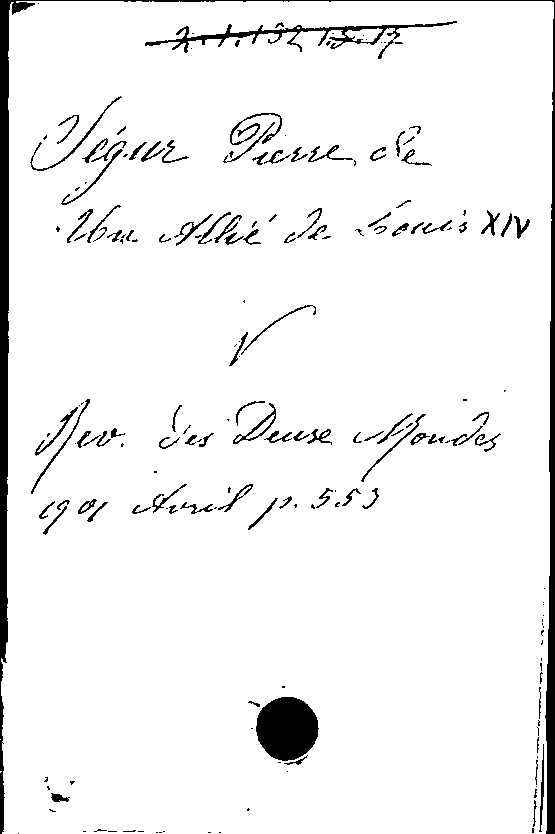 2.1.132 1.5.17
Ségur Pierre de
Un Allié de Louis XIV
V
Rev. des Deux Mondes
1901 Avril p. 553